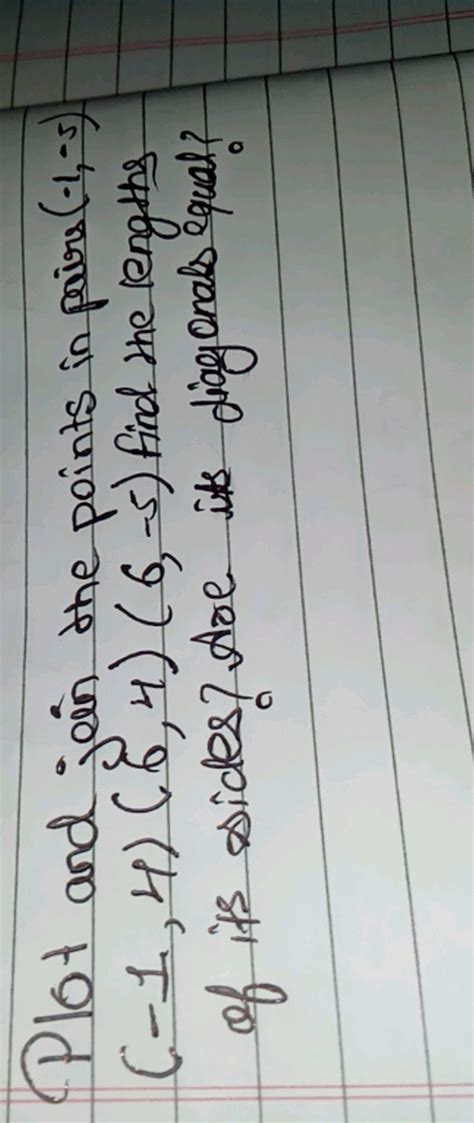 Plot and join the points in pairs (-1,-5)
(-1,4) (6,4) (6,-5) find the lengths
of its sides? Are its diagonals equal?